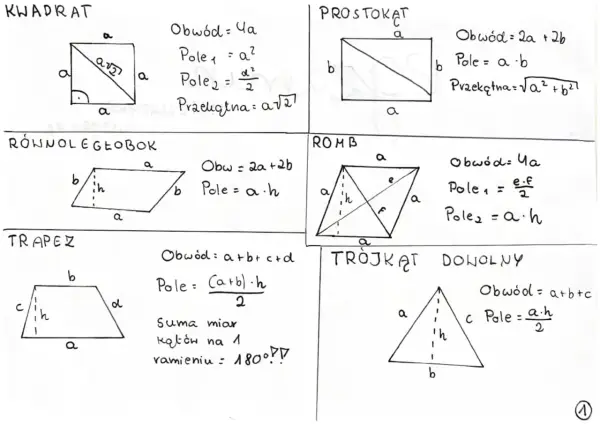 KWADRAT
a
a
a√2
a
a
Obwód = 4a
Pole₁ = a²
Pole₂ = d²/2
Przekątna = a√2
PROSTOKĄT
a
b
b
a
Obwód = 2a + 2b
Pole = a · b
Przekątna = √a² + b²
RÓWNOLEGŁOBOK
a
b
h
b
a
Obw = 2a + 2b
Pole = a · h
ROMB
a
a
e
h
f
a
a
Obwód = 4a
Pole₁ = e·f/2
Pole₂ = a · h
TRAPEZ
b
c
h
d
a
Obwód = a + b + c + d
Pole = (a+b)·h/2
Suma miar
kątów na 1
ramieniu = 180°!!
TRÓJKĄT DOWOLNY
a
c
h
b
Obwód = a + b + c
Pole = a·h/2
1